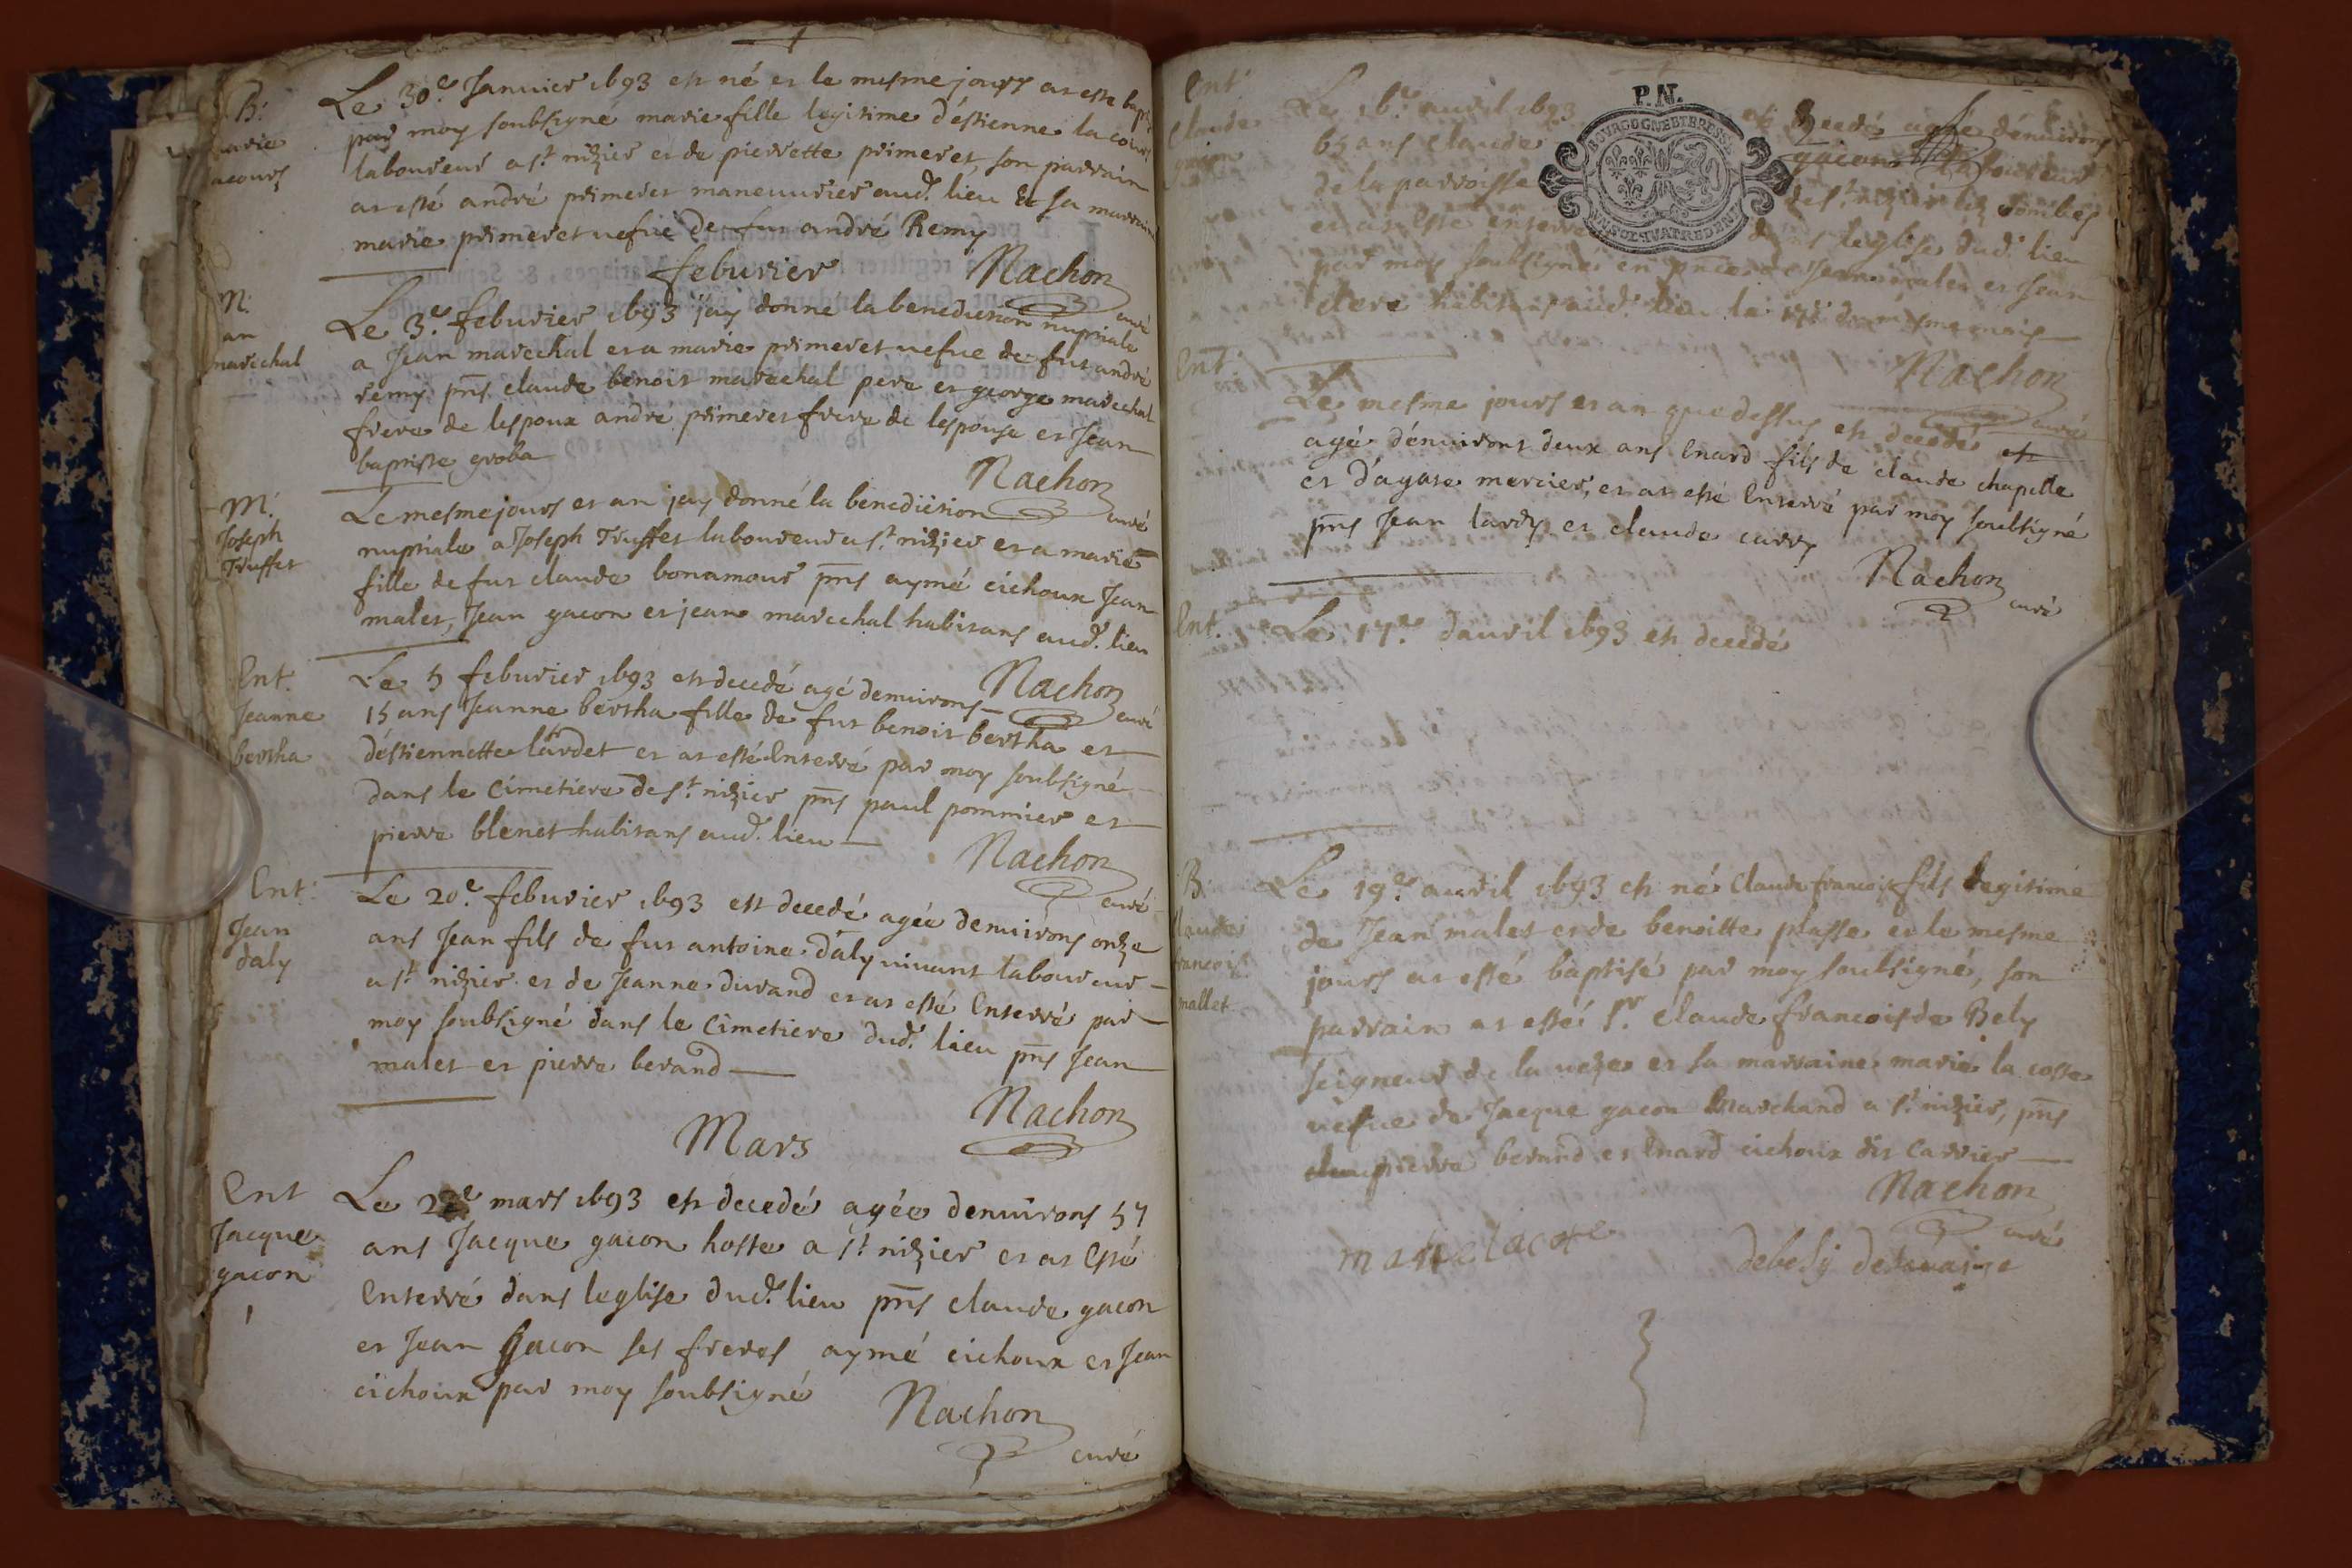 B.
marie
lacours
Le 30.e Januier 1693 est né et le mesme jours at este baptisé
par moy soubsigné marie fille legitime d'estienne lacours
laboureur a st. nizier et de pierrette primeret, son parrain
at esté andré primeret maneuurier aud. lieu Et sa marraine
marie primeret uefue de fut andré Remy
Nachon
curé
feburier
M.
Jean
marechal
Le 3.e feburier 1693 j'ay donné la benediction nuptiale
a Jean marechal et a marie primeret uefue de fut andré
remy pnts claude benoit marechal pere et george marechal
frere de lespoux andré primeret frere de lespouse et Jean
baptiste groba
Nachon
curé
M.
Joseph
Truffet
Le mesme jours et an jay donné la benediction
nuptiale a Joseph Truffet laboureur a st. nizier et a marie
fille de fut claude bonamour pnts aymé cichoux Jean
malet, Jean gacon et jean marechal habitans aud. lieu
Nachon
curé
Ent.
Jeanne
bertha
Le 5 feburier 1693 est decedé agé denuirons
15 ans Jeanne bertha fille de fut benoit bertha et
d'estiennette lardet et at esté Enterré par moy soubsigné
dans le Cimetiere de st. nizier pnts paul pommier et
pierre blenet habitans aud. lieu
Nachon
curé
Ent.
Jean
daly
Le 20.e feburier 1693 est decedé agée denuirons onze
ans Jean fils de fut antoine daly uiuant laboureur
a st. nizier et de Jeanne durand et at esté Enterré par
moy soubsigné dans le Cimetiere dud. lieu pnts Jean
malet et pierre berand
Nachon
Mars
Ent
Jacque
gacon
Le mars 1693 est decedé agée denuirons 57
ans Jacque gacon hoste a st. nizier et at Esté
Enterré dans leglise dud. lieu pnts claude gacon
et Jean gacon ses freres aymé cichoux et Jean
cichoux par moy soubsigné
Nachon
curé
P.N.
BOURGOGNE ET BRESSE
Ent.
Claude
gacon
Le 16.e auril 1693 est decedé agée dénuirons
65 ans claude gacon laboureur
de la parroisse de st. nizier lez dombes
et at Esté enterré dans leglise dud. lieu
par moy soubsigné en pnce de Jean malet et Jean
clere habitans aud. lieu le 17e
Nachon
curé
Ent.
Le mesme jours et an que dessus est decedé est
agé dénuirons deux ans Enard fils de claude chapelle
et d'agate mercier, et at esté Enterré par moy soubsigné
pnts Jean lardy et claude curry
Nachon
curé
Ent.
Le 17.e dauril 1693 est decedé
B.
Claude
francois
mallet
Le 19.e auril 1693 est né Claude francois fils legitime
de Jean malet et de benoitte plasse et le mesme
jours at esté baptisé par moy soubsigné, son
parrain at esté sr. Claude francois de Bely
seigneur de la ueze et sa marraine marie la coste
uefue de Jacque gacon Marchand a st. nizier, pnts
pierre berand et Enard cichoux dit carrier
Nachon
curé
marie lacote
debely